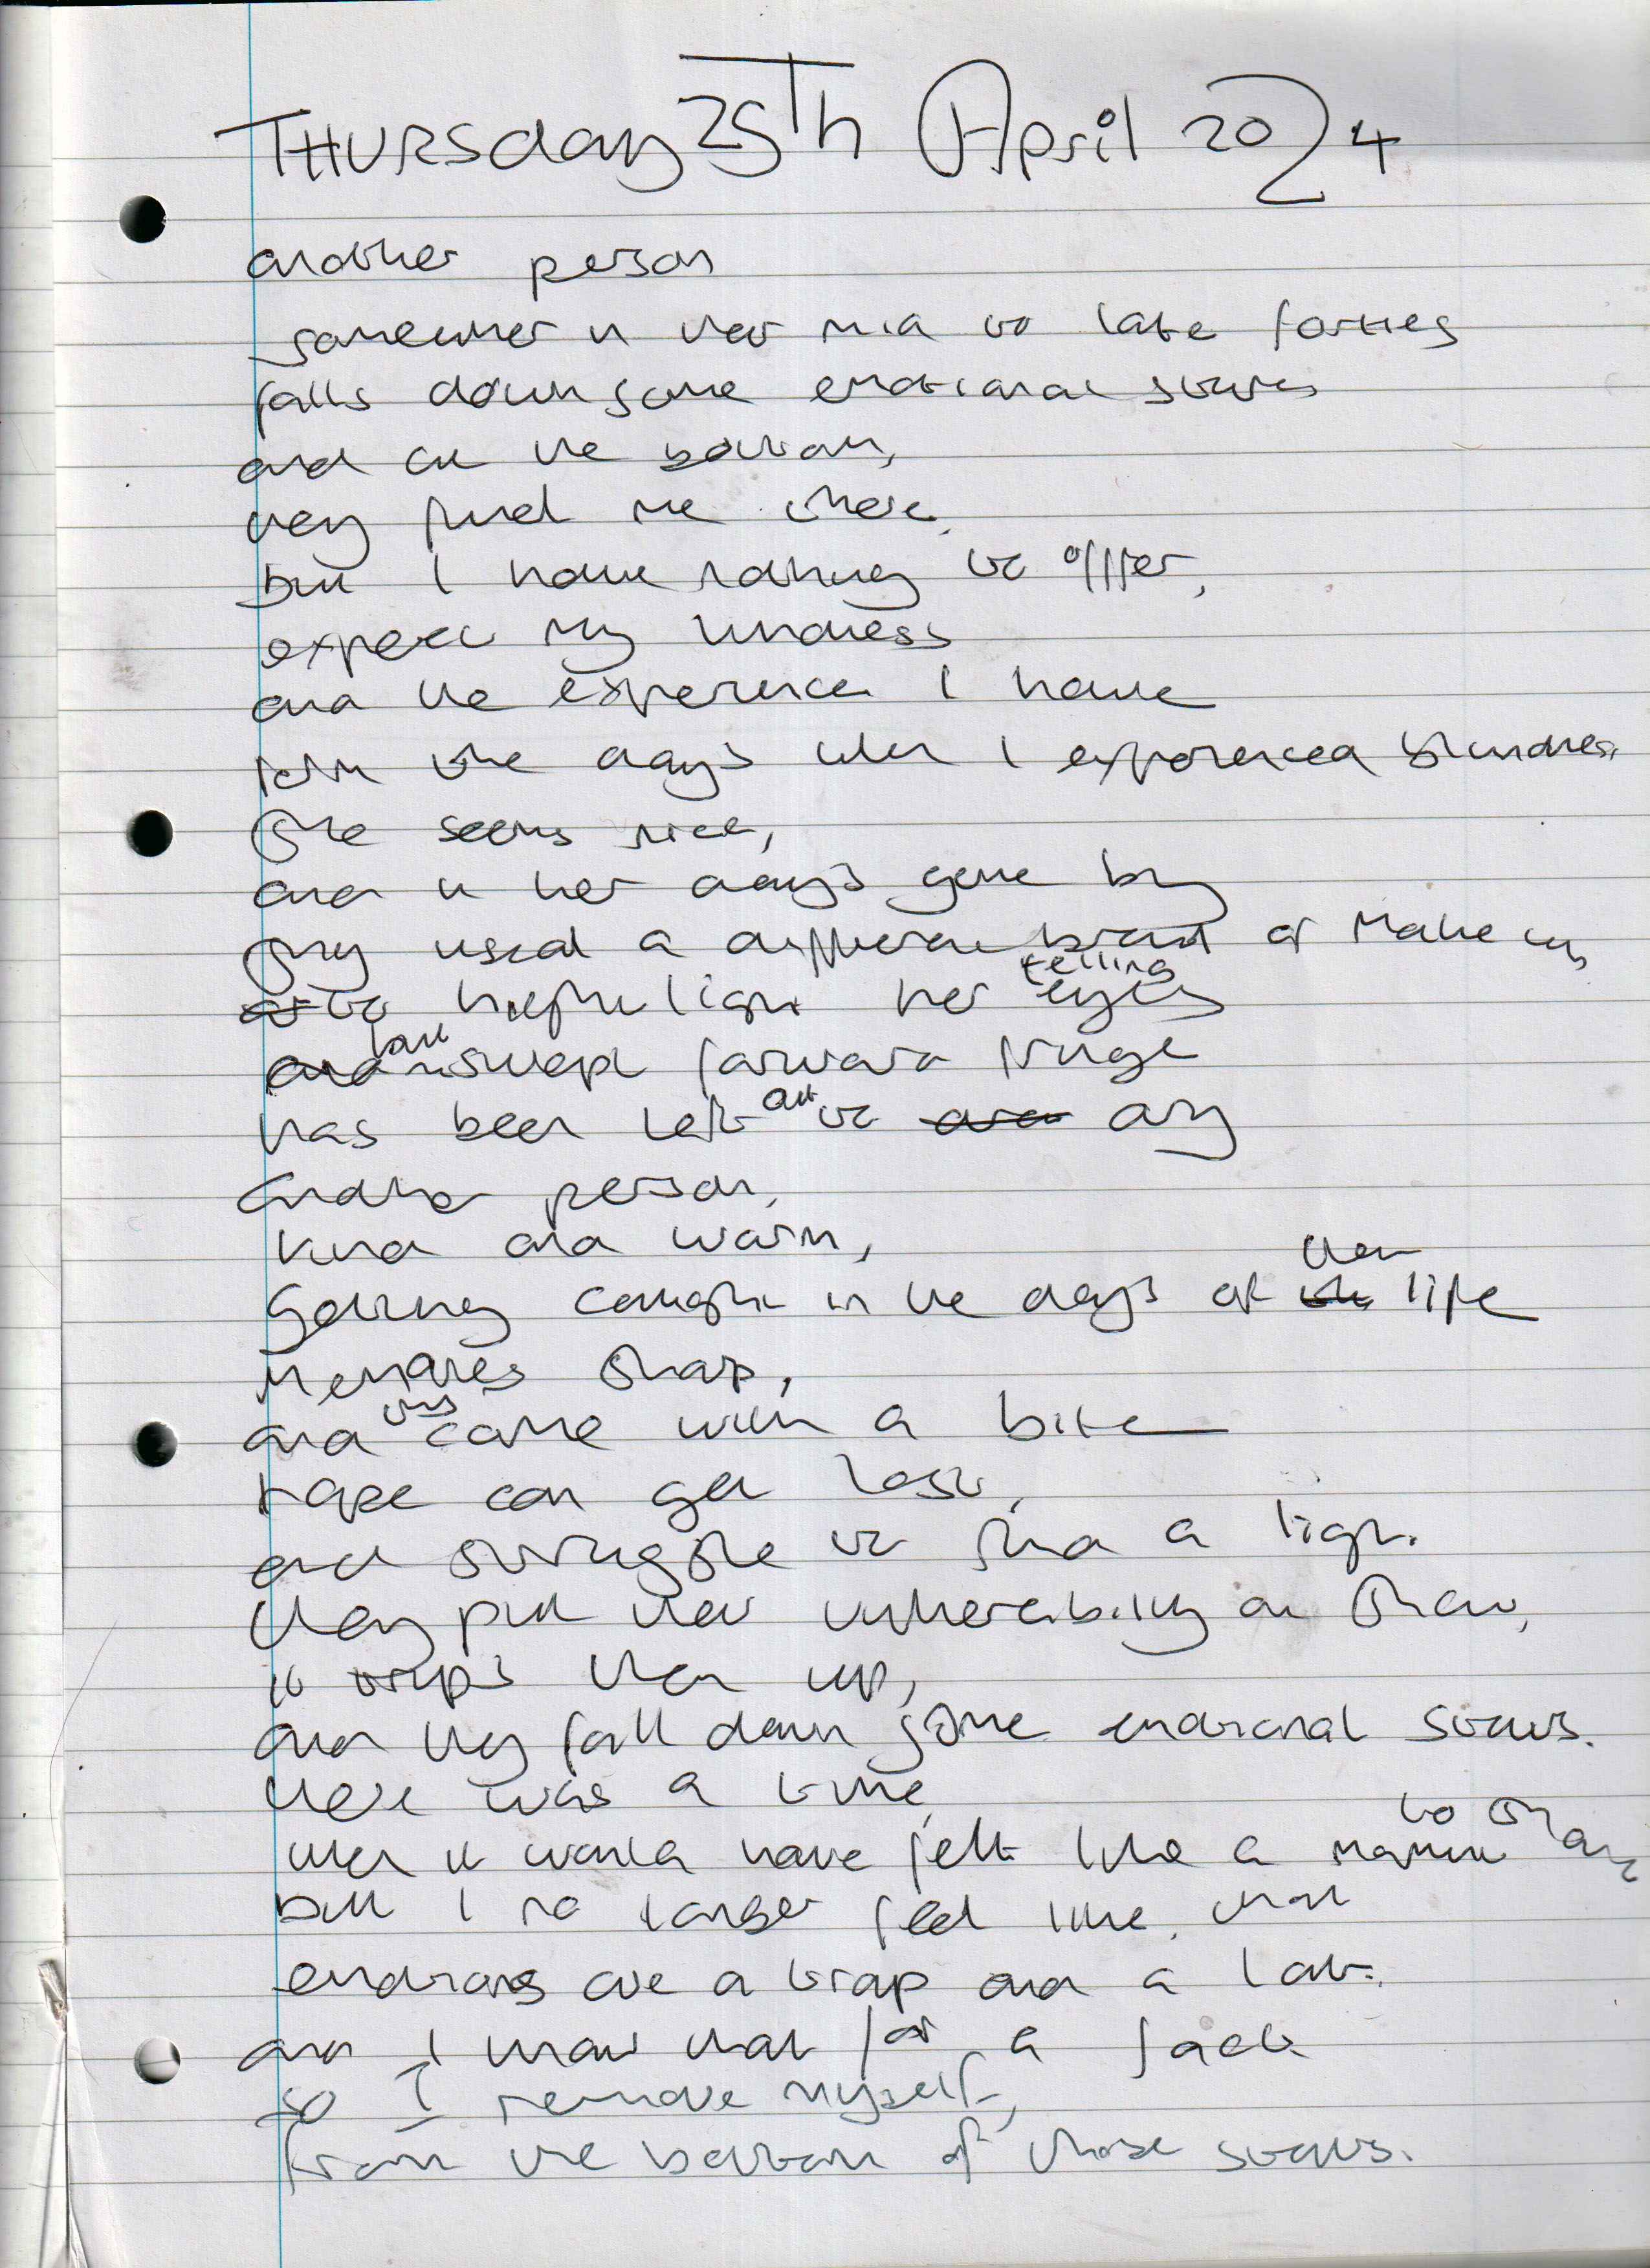 THURSday 25Th April 2024
another person
somewher in their mid to late forties
falls down some emotional stairs
and at the bottom,
they find me there.
but I have nothing to offer,
expect my kindness
and the experience I have
from the days when I experienced kindness.
She seems nice,
and in her days gone by
they used a different brand of make up
to highlight her telling eyes
swept forward fringe
has been left out to dry
another person,
kind and warm,
getting caught in the days of their life
memories sharp,
and this came with a bite
hope can get lost,
and struggle to find a light.
they put their vulnerability on show,
it trips them up,
and they fall down some emotional stairs.
there was a time,
when it would have felt like a moment to share
but I no longer feel like that
emotions are a trap and a lot.
and I know that for a fact
so I remove myself,
from the bottom of those stairs.